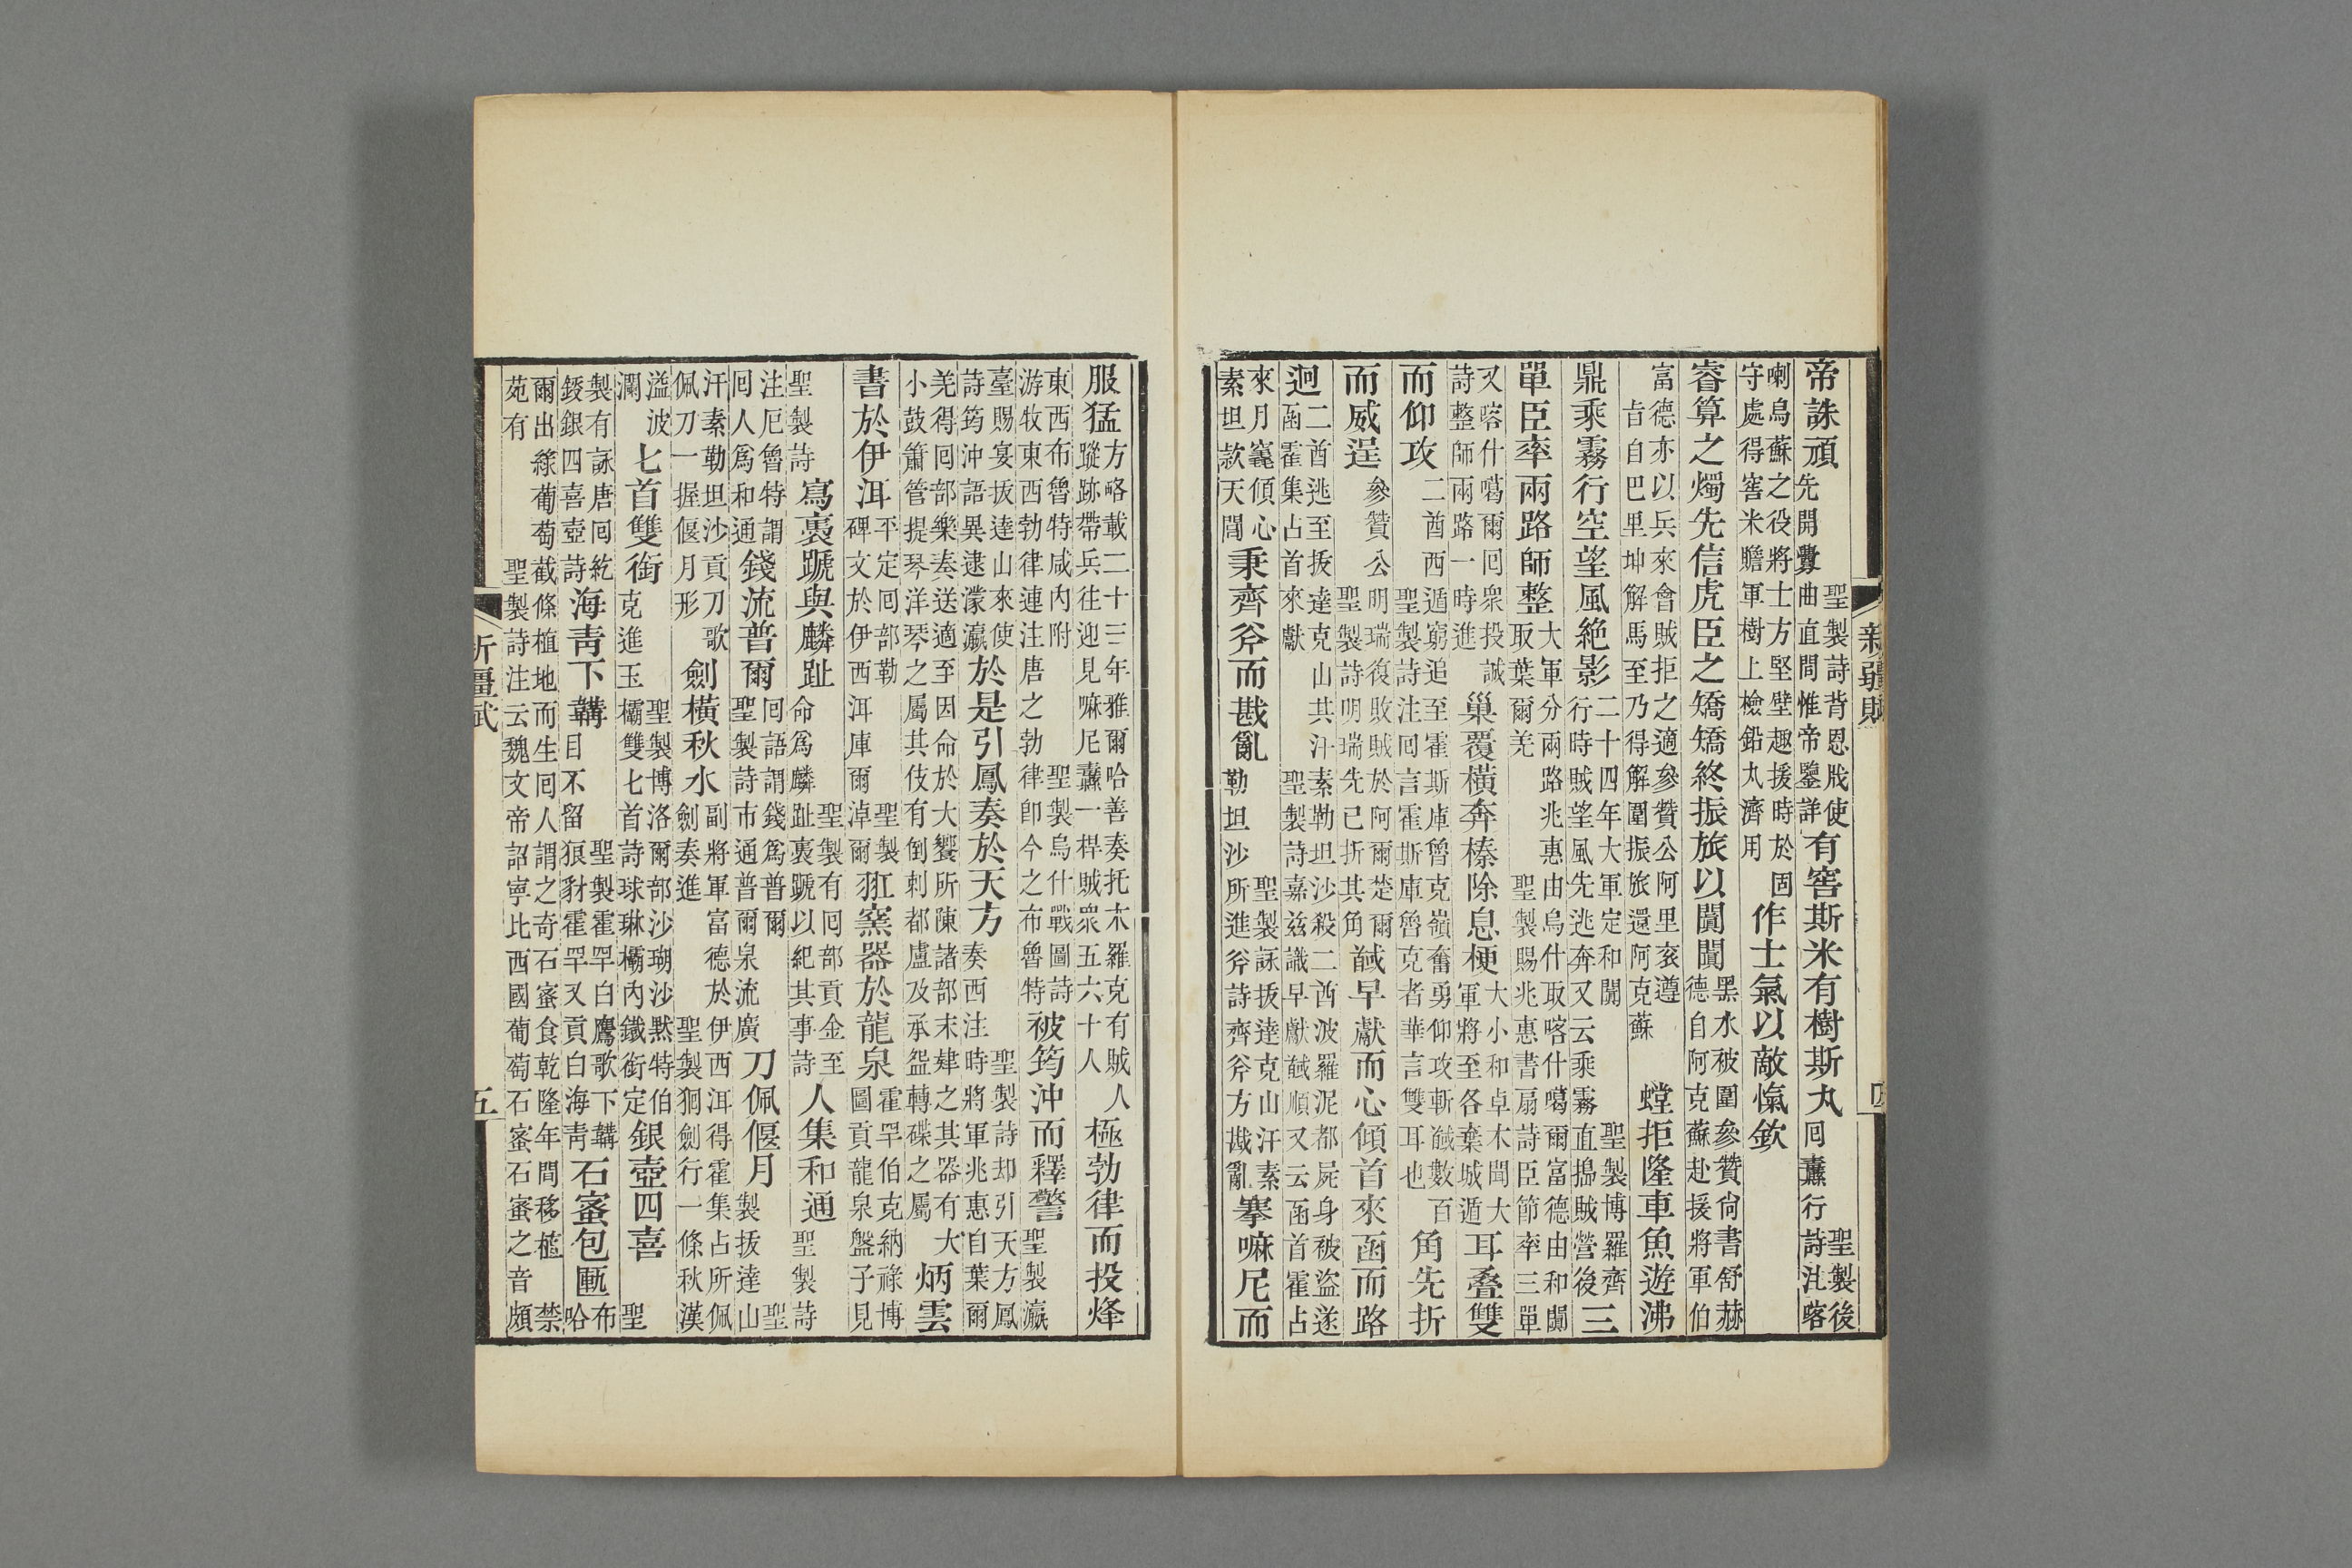 帝誅頑聖製詩背恩戕使先開釁曲直問惟帝鑒詳有窖斯米有樹斯丸聖製後回纛行詩注喀
喇烏蘇之役將士方堅壁趣援時於固守處得窖米贍軍樹上檢鉛丸濟用作士氣以敵愾欽
睿算之燭先信虎臣之矯矯終振旅以闐闐黑水被圍參贊尚書舒赫德自阿克蘇赴援將軍伯
富德亦以兵來會賊拒之適參贊公阿里衮遵旨自巴里坤解馬至乃得解圍振旅還阿克蘇螳拒隆車魚遊沸
鼎乘霧行空望風絶影二十四年大軍定和闐聖製博羅齊行時賊望風先逃奔又云乘霧直搗賊營後三
單臣率兩路師整大軍分兩路兆惠由烏什取喀什噶爾富德由和闐取葉爾羌聖製賜兆惠書扇詩臣節率三單
又喀什噶爾回衆投誠詩整師兩路一時進巢覆橫奔榛除息梗大小和卓木聞大軍將至各棄城遁耳叠雙
而仰攻二酋西遁窮追至霍斯庫魯克嶺奮勇仰攻斬馘數百聖製詩注回言霍斯庫魯克者華言雙耳也角先折
而威逞參贊公明瑞復敗賊於阿爾楚爾聖製詩明瑞先已折其角馘早獻而心傾首來函而路
迥二酋逃至拔達克山其汗素勒坦沙殺二酋波羅泥都屍身被盜遂函霍集占首來獻聖製詩嘉兹識早獻馘順又云函首霍占
來月竁傾心素坦款天閶秉齊斧而戡亂聖製詠拔達克山汗素勒坦沙所進斧詩齊斧方戡亂搴嘛尼而
新疆賦 四
服猛方略載二十三年雅爾哈善奏托木羅克有賊人蹤跡帶兵往迎見嘛尼纛一桿賊衆五六十人極勃律而投烽
東西布魯特咸内附聖製烏什戰圖詩游牧東西勃律連注唐之勃律即今之布魯特被筠沖而釋警聖製瀛
臺賜宴拔達山來使詩筠沖語異逮濛瀛於是引鳳奏於天方聖製詩却引天方鳳奏西注時將軍兆惠自葉爾
羌得回部樂奏送適至因命於大饗所陳諸部末肄之其器有大小鼓簫管提琴洋琴之屬其伎有倒刺都盧及承盌轉碟之屬炳雲
書於伊洱平定回部勒聖製碑文於伊西洱庫爾淖爾羾窯器於龍泉霍罕伯克納祿博圖貢龍泉盤子見
聖製詩寫褭蹏與麟趾聖製有回部貢金至命爲麟趾褭蹏以紀其事詩人集和通聖製詩
注厄魯特謂回人爲和通錢流普爾回語謂錢爲普爾聖製詩市通普爾泉流廣刀佩偃月聖製拔達山
汗素勒坦沙貢刀歌佩刀一握偃月形劍橫秋水副將軍富德於伊西洱得霍集占所佩劍奏進聖製狪劍行一條秋漢
溢波瀾七首雙銜聖製博洛爾部沙瑚沙默特伯克進玉欛雙七首詩球琳欛内鐵銜定銀壺四喜聖
製有詠唐回紇鋄銀四喜壺詩海靑下韝聖製霍罕白鷹歌下韝目不留狠豺霍罕又貢白海靑石蜜包匭布哈
爾出綠葡萄截條植地而生回人謂之奇石蜜食乾隆年間移植禁苑有聖製詩注云魏文帝詔寧比西國葡萄石蜜石蜜之音頗
新疆賦 五